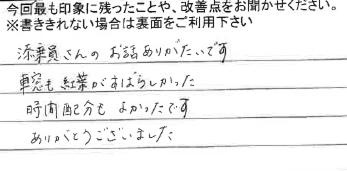 今回最も印象に残ったことや、改善点をお聞かせください。
※書ききれない場合は裏面をご利用下さい
添乗員さんのお話ありがたいです
車窓も紅葉がすばらしかった
時間配分もよかったです
ありがとうございました